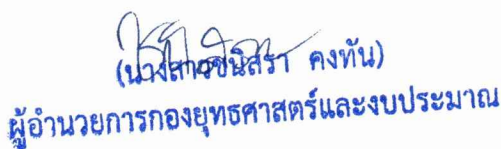 (นางสาวชนิสรา คงทัน)
ผู้อำนวยการกองยุทธศาสตร์และงบประมาณ